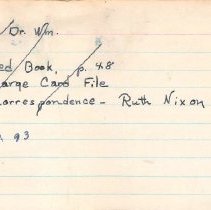 Dr. Wm.
ed Book, p. 48
arge Card File
orrespondence - Ruth Nixon
93